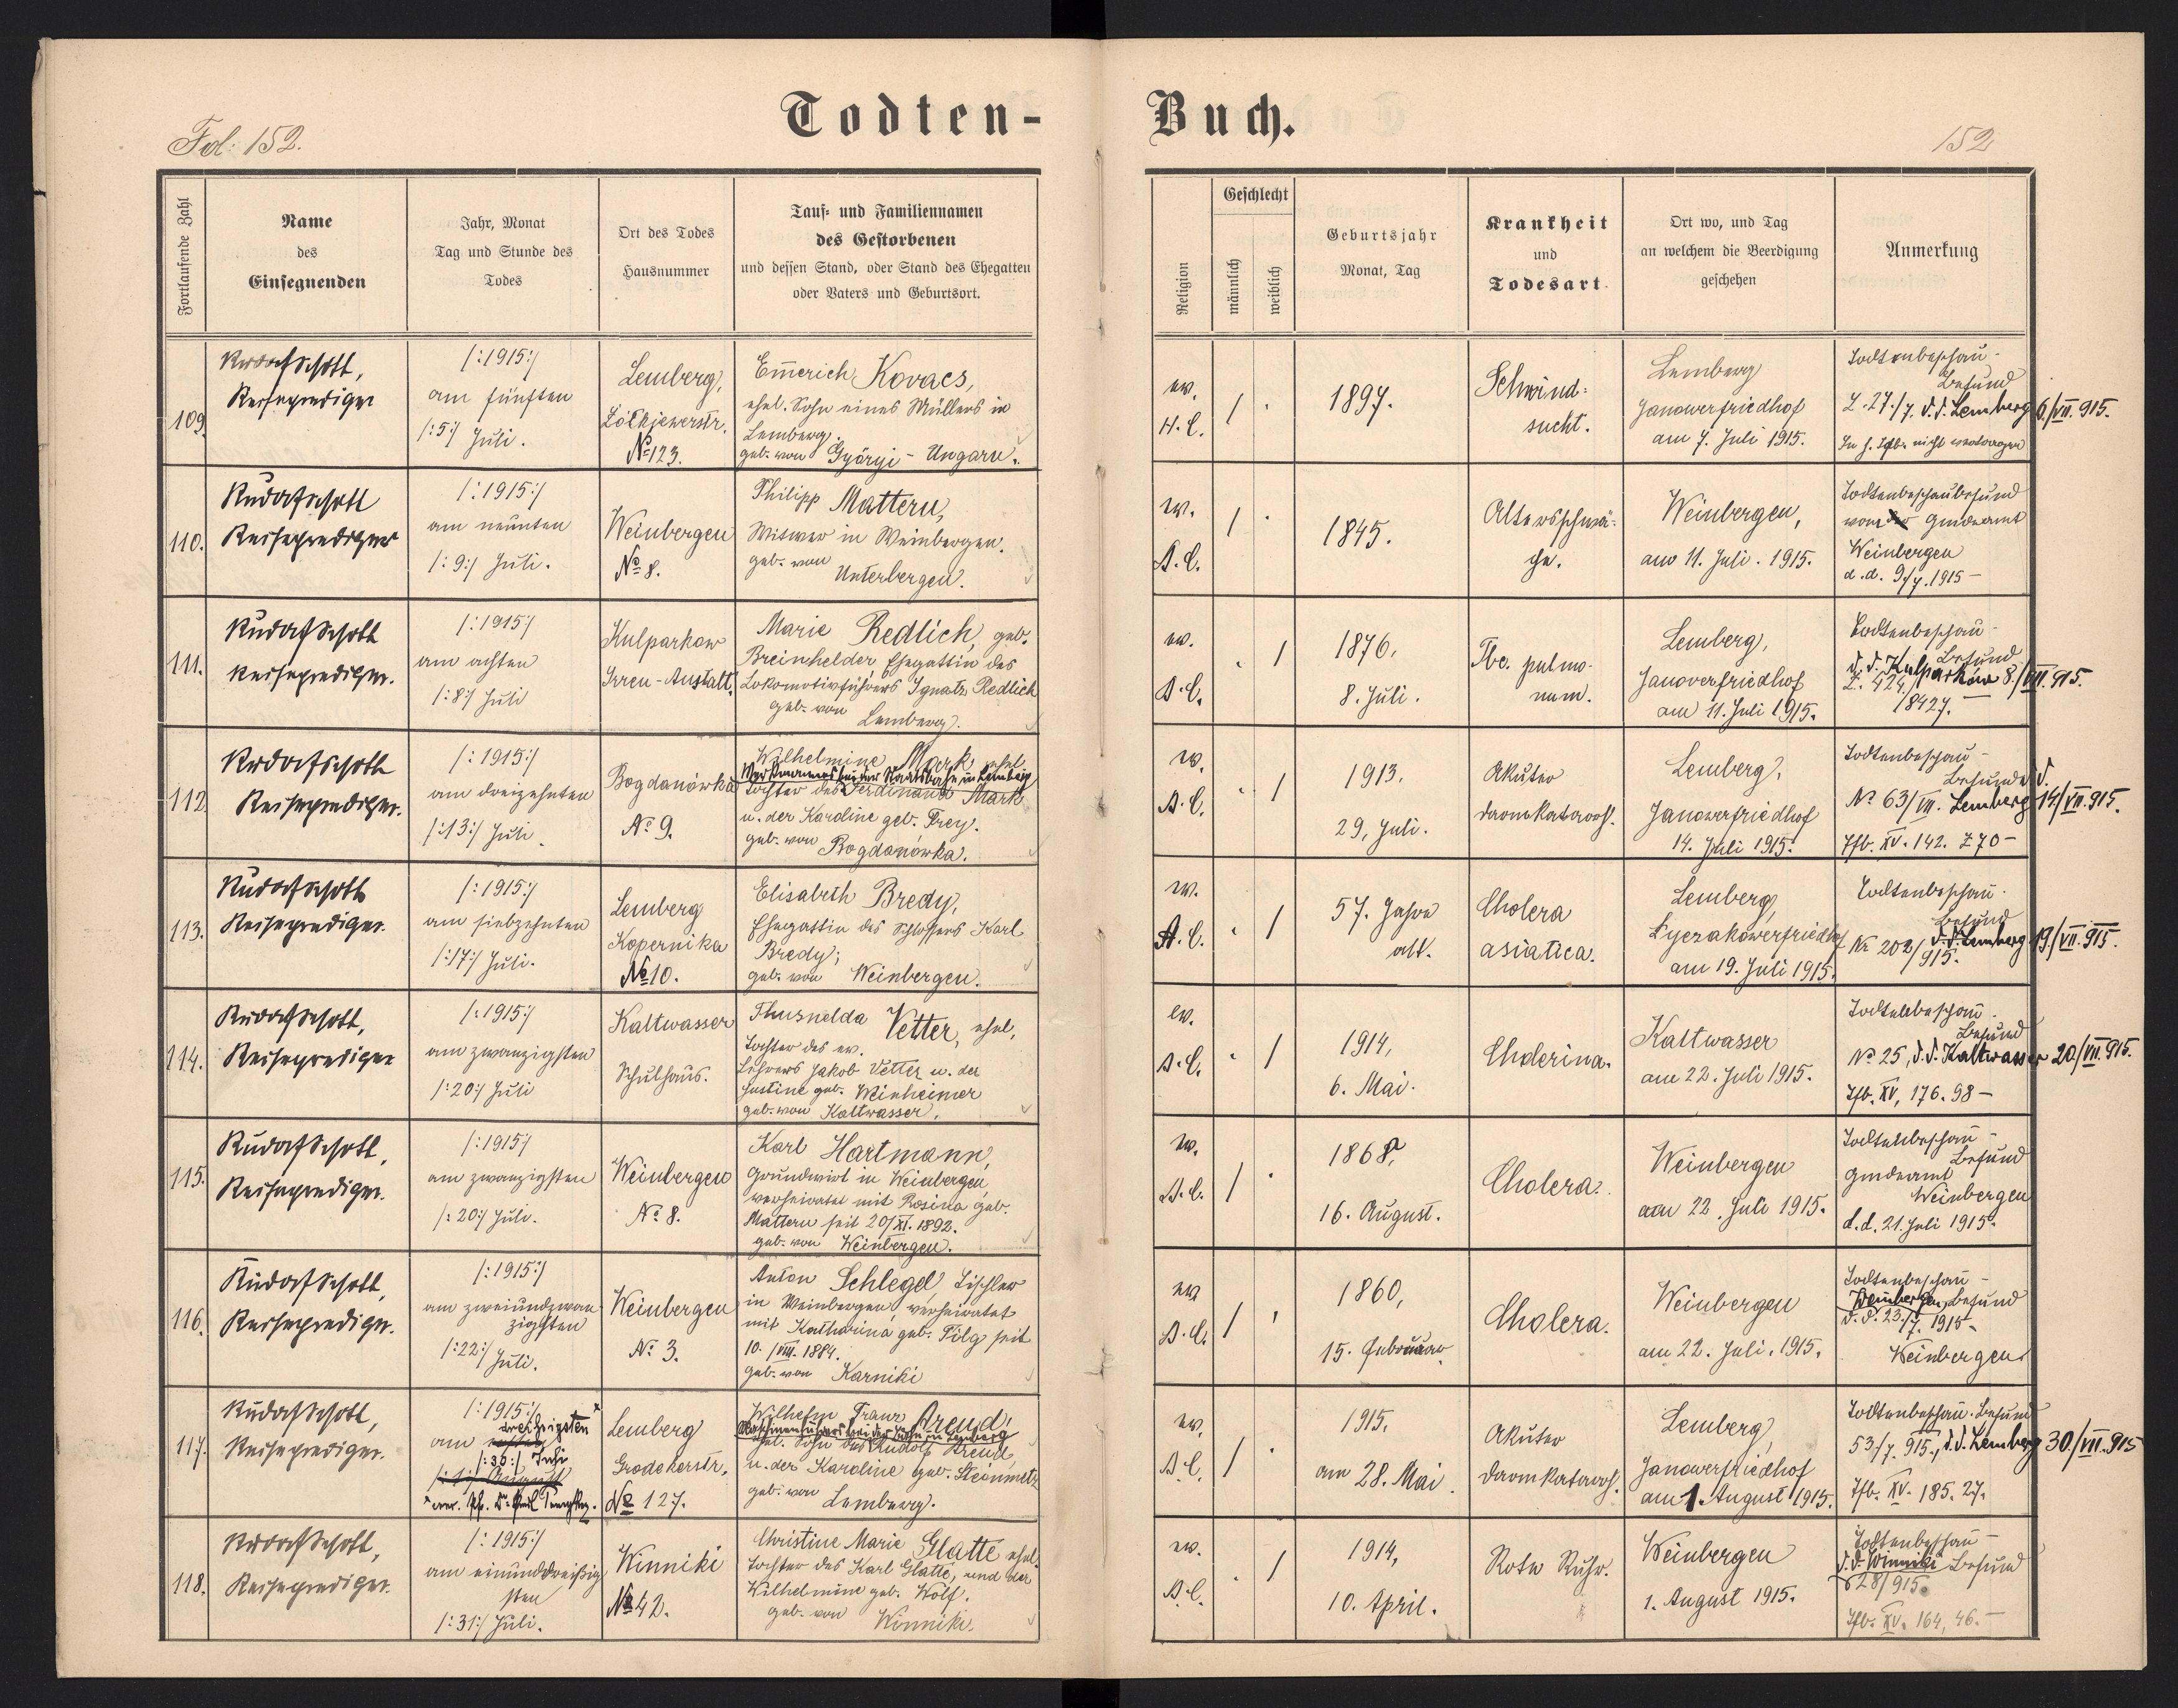 Todten-
Buch.
Fol. 152.
152
Fortlaufende Zahl
Name
des
Einsegnenden
Jahr, Monat
Tag und Stunde des
Todes
Ort des Todes
Hausnummer
Tauf- und Familiennamen
des Gestorbenen
und dessen Stand, oder Stand des Ehegatten
oder Vaters und Geburtsort.
Religion
Geschlecht
männlich
weiblich
Geburtsjahr
Monat, Tag
Krankheit
und
Todesart
Ort wo, und Tag
an welchem die Beerdigung
geschehen
Anmerkung
109.
Rudolf Schott,
Reiseprediger
/:1915:/
am fünften
/:5:/ Juli.
Lemberg,
Żółkiewerstr.
No 123.
Emerich Kovacs,
ehel. Sohn eines Müllers in
Lemberg.
geb. von Györgi - Ungarn.
ev.
H.C.
/
1897.
Schwind-
sucht.
Lemberg
Janowerfriedhof
am 7. Juli 1915.
Todtenbeschau-
Befund
Z. 27./7. d.d. Lemberg 6/VII. 915.
110.
Rudolf Schott
Reiseprediger
/:1915:/
am neunten
/:9:/ Juli.
Weinbergen
No 8.
Philipp Mattern,
Witwer in Weinbergen.
geb. von
Unterbergen.
ev.
A.C.
/
1845.
Altersschwä-
che.
Weinbergen,
am 11. Juli. 1915.
Todtenbeschaubefund
vom Gmdeamt
Weinbergen
d.d. 9./7. 1915 -
111.
Rudolf Schott
Reiseprediger.
/:1915:/
am achten
/:8:/ Juli
Kulparkow
Irren-Anstalt.
Marie Redlich, geb.
Breinhelder Ehegattin des
Lokomotivführers Ignatz Redlich
geb. von Lemberg.
ev.
A.C.
/
1876,
8. Juli.
Tbc. pulmo-
num.
Lemberg,
Janoverfriedhof
am 11. Juli 1915.
Todtenbeschau-
Befund
d.d. Kulparków 8./VII. 915.
Z. 424/
18427.
112
Rudolf Schott
Reiseprediger.
/:1915:/
am dreizehnten
/:13:/ Juli.
Bogdanówka
No 9.
Wilhelmine Mark ehel.
Werkmanns bei der Staatsbahn in Lemberg
Tochter des Ferdinand Mark
u. der Karoline geb. Frey.
geb. von Bogdanówka.
ev.
A.C.
/
1913.
29. Juli.
Akuter
Darmkatarrh.
Lemberg,
Janowerfriedhof
14. Juli 1915.
Todtenbeschau-
Befund d.d.
No 63/VII. Lemberg 14/VII. 915.
Tfb. XV. 142. Z 70 -
113.
Rudolf Schott
Reiseprediger.
/:1915:/
am siebzehnten
/:17:/ Juli.
Lemberg
Kopernika
No 10.
Elisabeth Bredy,
Ehegattin des Schlossers Karl
Bredy;
geb. von Weinbergen.
ev.
A.C.
/
57. Jahre
alt.
Cholera
asiatica.
Lemberg,
Lyczakowerfriedhof
am 19. Juli 1915.
Todtenbeschau-
Befund
Nr 202/915. d.d. Lemberg 19./VII. 915.
114.
Rudolf Schott,
Reiseprediger
/:1915:/
am zwanzigsten
/:20:/ Juli
Kaltwasser
Schulhaus.
Thusnelda Vetter, ehel.
Tochter des ev.
Lehrers Jakob Vetter u. der
Justine geb. Weinheimer
geb. von Kaltwasser.
ev.
A.C.
/
1914,
6. Mai.
Cholerina.
Kaltwasser
am 22. Juli 1915.
Todtenbeschau-
Befund
No 25, d.d. Kaltwasser 20./VII. 915.
Tfb. XV, 176. 98 -
115.
Rudolf Schott,
Reiseprediger.
/:1915:/
am zwanzigsten
/:20:/ Juli.
Weinbergen
No 8.
Karl Hartmann,
Grundwirt in Weinbergen,
verheiratet mit Rosina geb.
Mattern seit 20/XI. 1892.
geb. von Weinbergen.
ev.
A.C.
/
1868,
16. August.
Cholera.
Weinbergen
am 22. Juli 1915.
Todtenbeschau-
Befund
Gmdeamt
Weinbergen
d.d. 21. Juli 1915.
116.
Rudolf Schott,
Reiseprediger.
/:1915:/
am zweiundzwan-
zigsten
/:22:/ Juli.
Weinbergen
No 3.
Anton Schlegel, Tischler
in Weinbergen, verheiratet
mit Katharina geb. Filg seit
10./VIII. 1884.
geb. von Karniki
ev
A.C.
/
1860,
15. Februar
Cholera.
Weinbergen
am 22. Juli. 1915.
Todtenbeschau-
Weinbergen, Befund
d.d. 23./7. 1915 -
Weinbergen
117.
Rudolf Schott,
Reiseprediger.
/:1915:/
am dreißigsten
/:30:/ Juli
/:1:/ August
Lemberg
Grodekerstr.
No 127.
Wilhelm Franz Arend,
Maschinenführers bei der Bahn in Lemberg
ehel. Sohn des Rudolf Arend,
u. der Karoline geb. Steinmetz
geb. von Lemberg.
ev.
A.C.
/
1915,
am 28. Mai.
Akuter
Darmkatarrh.
Lemberg,
Janowerfriedhof
am 1. August 1915.
Todtenbeschau-Befund
53/7. 915., d.d. Lemberg 30./VII. 915
Tfb. XV. 185. 27.
118.
Rudolf Schott,
Reiseprediger.
/:1915:/
am einunddreißig-
sten
/:31:/ Juli.
Winniki
No 42.
Christine Marie Glatte ehel.
Tochter des Karl Glatte, und der
Wilhelmine geb. Wolf.
geb. von Winniki.
ev.
A.C.
/
1914,
10. April.
Rote Ruhr.
Weinbergen
1. August 1915.
Todtenbeschau-
d.d. Winniki Befund
28/915.
Tfb. XV. 164, 46. -